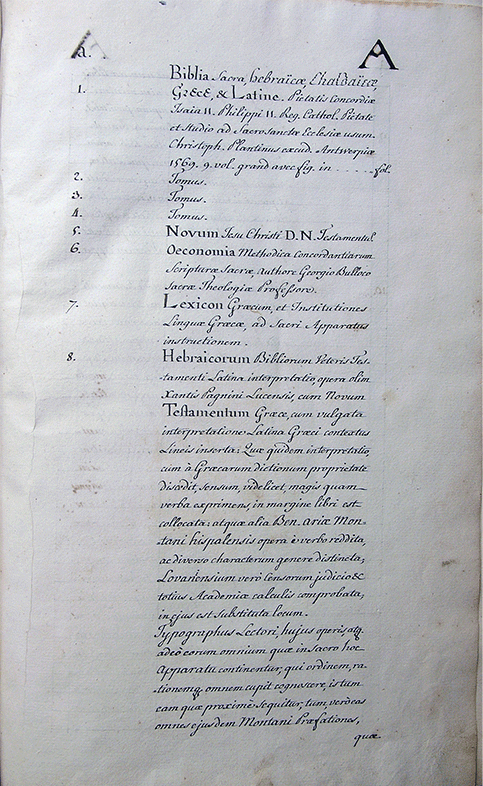 a. A
Biblia Sacra, hebraïcæ, Chaldaïcæ,
1. Græcè, & Latine. Pietatis Concordiæ
Isaia 11. Philippi 11. Reg. Cathol. Pietate
et Studio ad Sacro Sanctæ Ecclesiæ usum.
Christoph. Plantinus excud. Antwerpiæ
1569. 9. vol. grand avec fig. in ..... fol.
2. Tomus.
3. Tomus.
4. Tomus.
5. Novum Jesu Christi D. N. Testamentũ.
6. Oeconomia Methodica Concordantiarum
Scripturæ Sacræ, Authore Georgio Bulloco
Sacræ Theologiæ Professore.
7. Lexicon Græcum, et Institutiones
Linguæ Græcæ, ad Sacri Apparatus
instructionem.
8. Hebraicorum Bibliorum Veteris Tes-
tamenti Latina interpretatio, opera olim
Xantis Pagnini Lucensis, cum Novum
Testamentum Græce, cum vulgata
interpretatione Latina Græci contextus
Lineis inserta: Quæ quidem interpretatio,
cum à Græcarum dictionum proprietate
discedit, sensum, videlicet, magis quam
verba exprimens, in margine libri est
collocata: atquæ alia Ben. Ariæ Mon-
tani hispalensis opera è verbo reddita,
ac diverso characterum genere distincta,
Lovaniensium verò Censorum judicio &
totius Academiæ calculis comprobata,
in ejus est substituta locum.
Typographus Lectori, hujus operis, atq.
adeò eorum omnium quæ in Sacro hoc
Apparatu continentur, qui ordinem, ra-
tionemq. omnem cupit cognoscere, is tum
eam quæ proximè sequitur, tum, verò eas
omnes ejusdem Montani Præfationes,
quæ